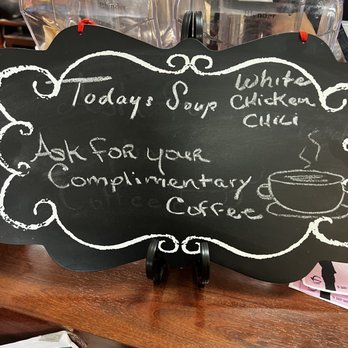 Todays Soup
White
Chicken
Chili
Ask for your
Complimentary
Coffee